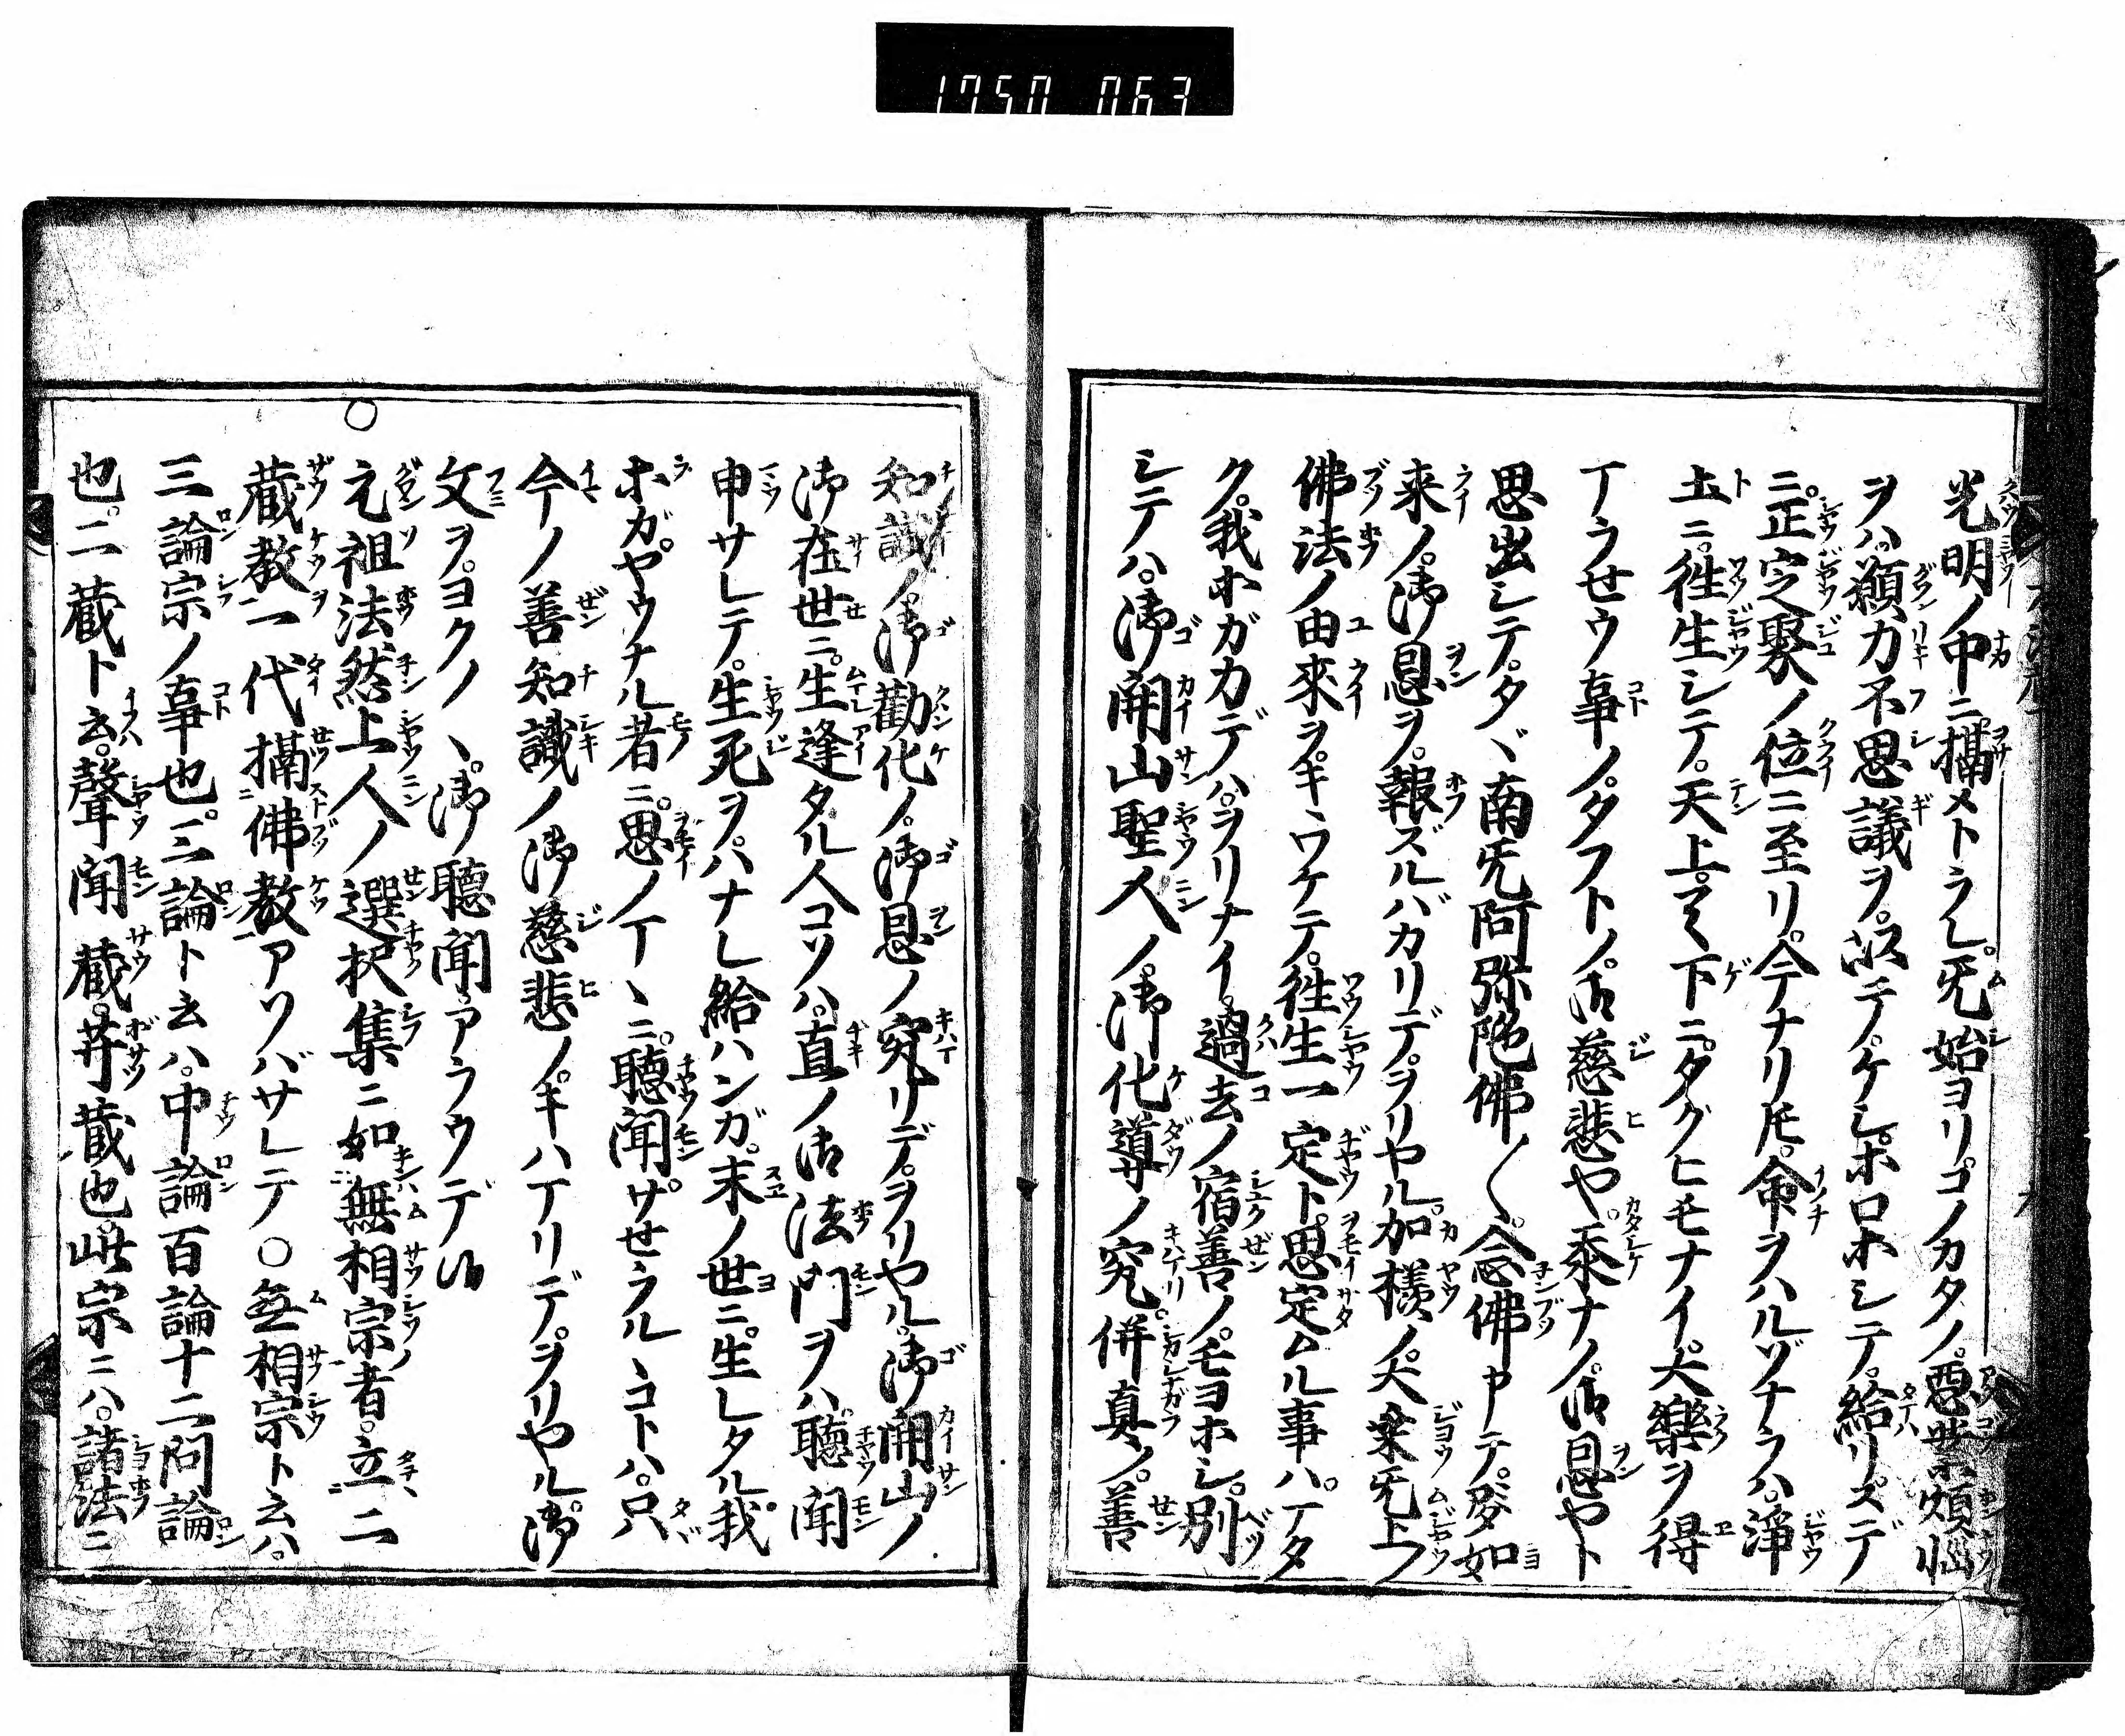 1750 063
光明ノ中ニ攝メトラレ。旡始ヨリコノカタノ。惡業煩惱
ヲハ。願力不思議ヲ。以テノケレ。ホロホシテ。給リスデ
ニ。正定聚ノ位ニ至リ。今ナリ𪜈。命ヲハルゾナラハ。淨
土ニ。徃生シテ。天上天下ニ。タグヒモナイ。大樂ヲ得
ヿラせウ事ノ。タフトノ。御慈悲や。忝ナノ。御恩やト
思出シテ。タヾ南旡阿弥陀佛〱。念佛申テ。如
来ノ。御恩ヲ。報ズルバカリデ。ヲリヤル。加樣ノ。大乗旡上
佛法ノ由來ヲ。キヽワケテ。徃生一定ト。思定ムル事ハ。ヿタ
ク。我ホガカデハ。ヲリナイ。過去ノ宿善ノ。モヨホシ。別
シテハ。御開山聖人ノ。御化導ノ究リ。併真ノ。善
知識ノ。御勸化ノ。御恩ノ究リデ。ヲリヤル。御開山ノ
御在世ニ。生逢タル人コソハ。直ノ御法門ヲハ。聽聞
申サレテ。生死ヲ。ハナレ給ハンガ。末ノ世ニ。生レタル。我
ホガ。ヤウナル者ニ。思ノヿヽニ。聽聞。サせラルヽコトハ。只
今ノ善知識ノ御慈悲ノ。キハヿリデ。ヲリヤル。御
文ヲ。ヨクノヽ。御聽聞アラウデ候
○元祖法然上人ノ選択集ニ如無相宗者。立二
蔵教一代攝佛教アソバサレテ○無相宗ト云ハ。
三論宗ノ事也。三論ト云ハ。中論百論十二問論
也。二蔵ト云。聲聞蔵。菩蔵也。此宗ニハ。諸法ニ